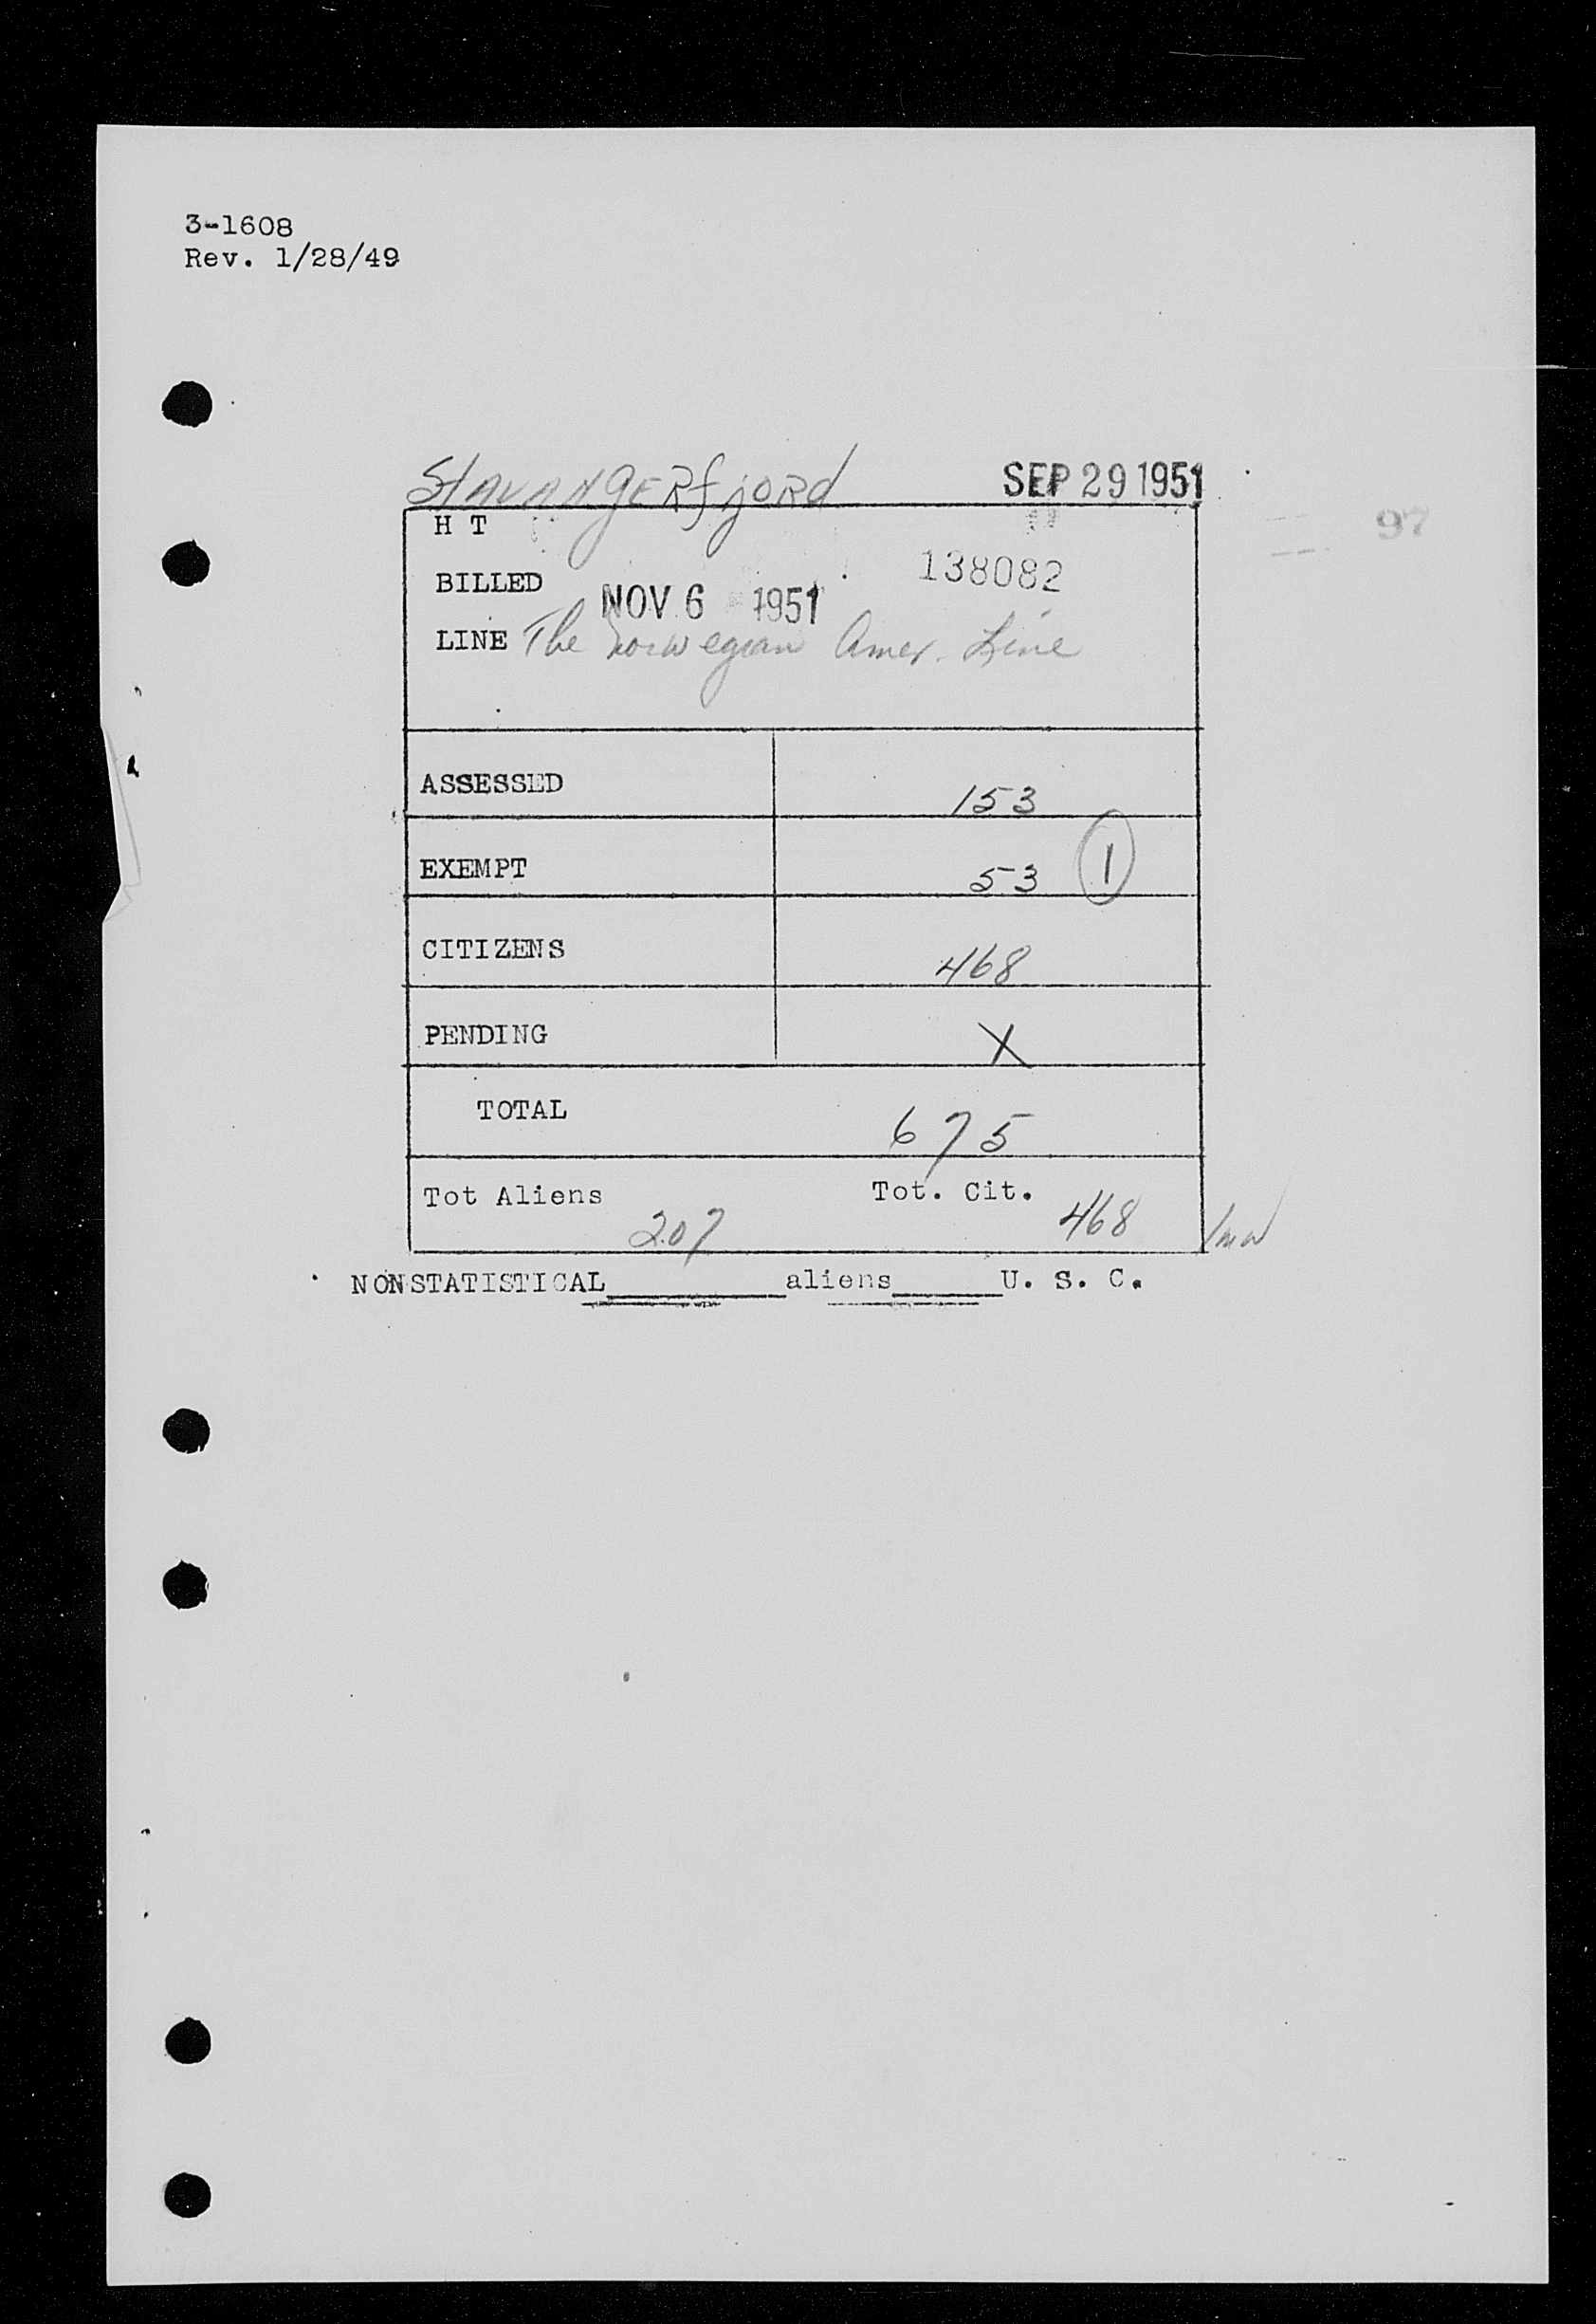 3-1608
Rev. 1/28/49
Stavangerfjord SEP 29 1951
H T
97
BILLED NOV 6 1951 138082
LINE The Norwegian Amer. Line
ASSESSED 153
EXEMPT 53 1
CITIZENS 468
PENDING X
TOTAL 675
Tot Aliens 207 Tot. Cit. 468
NONSTATISTICAL__________aliens______U. S. C.